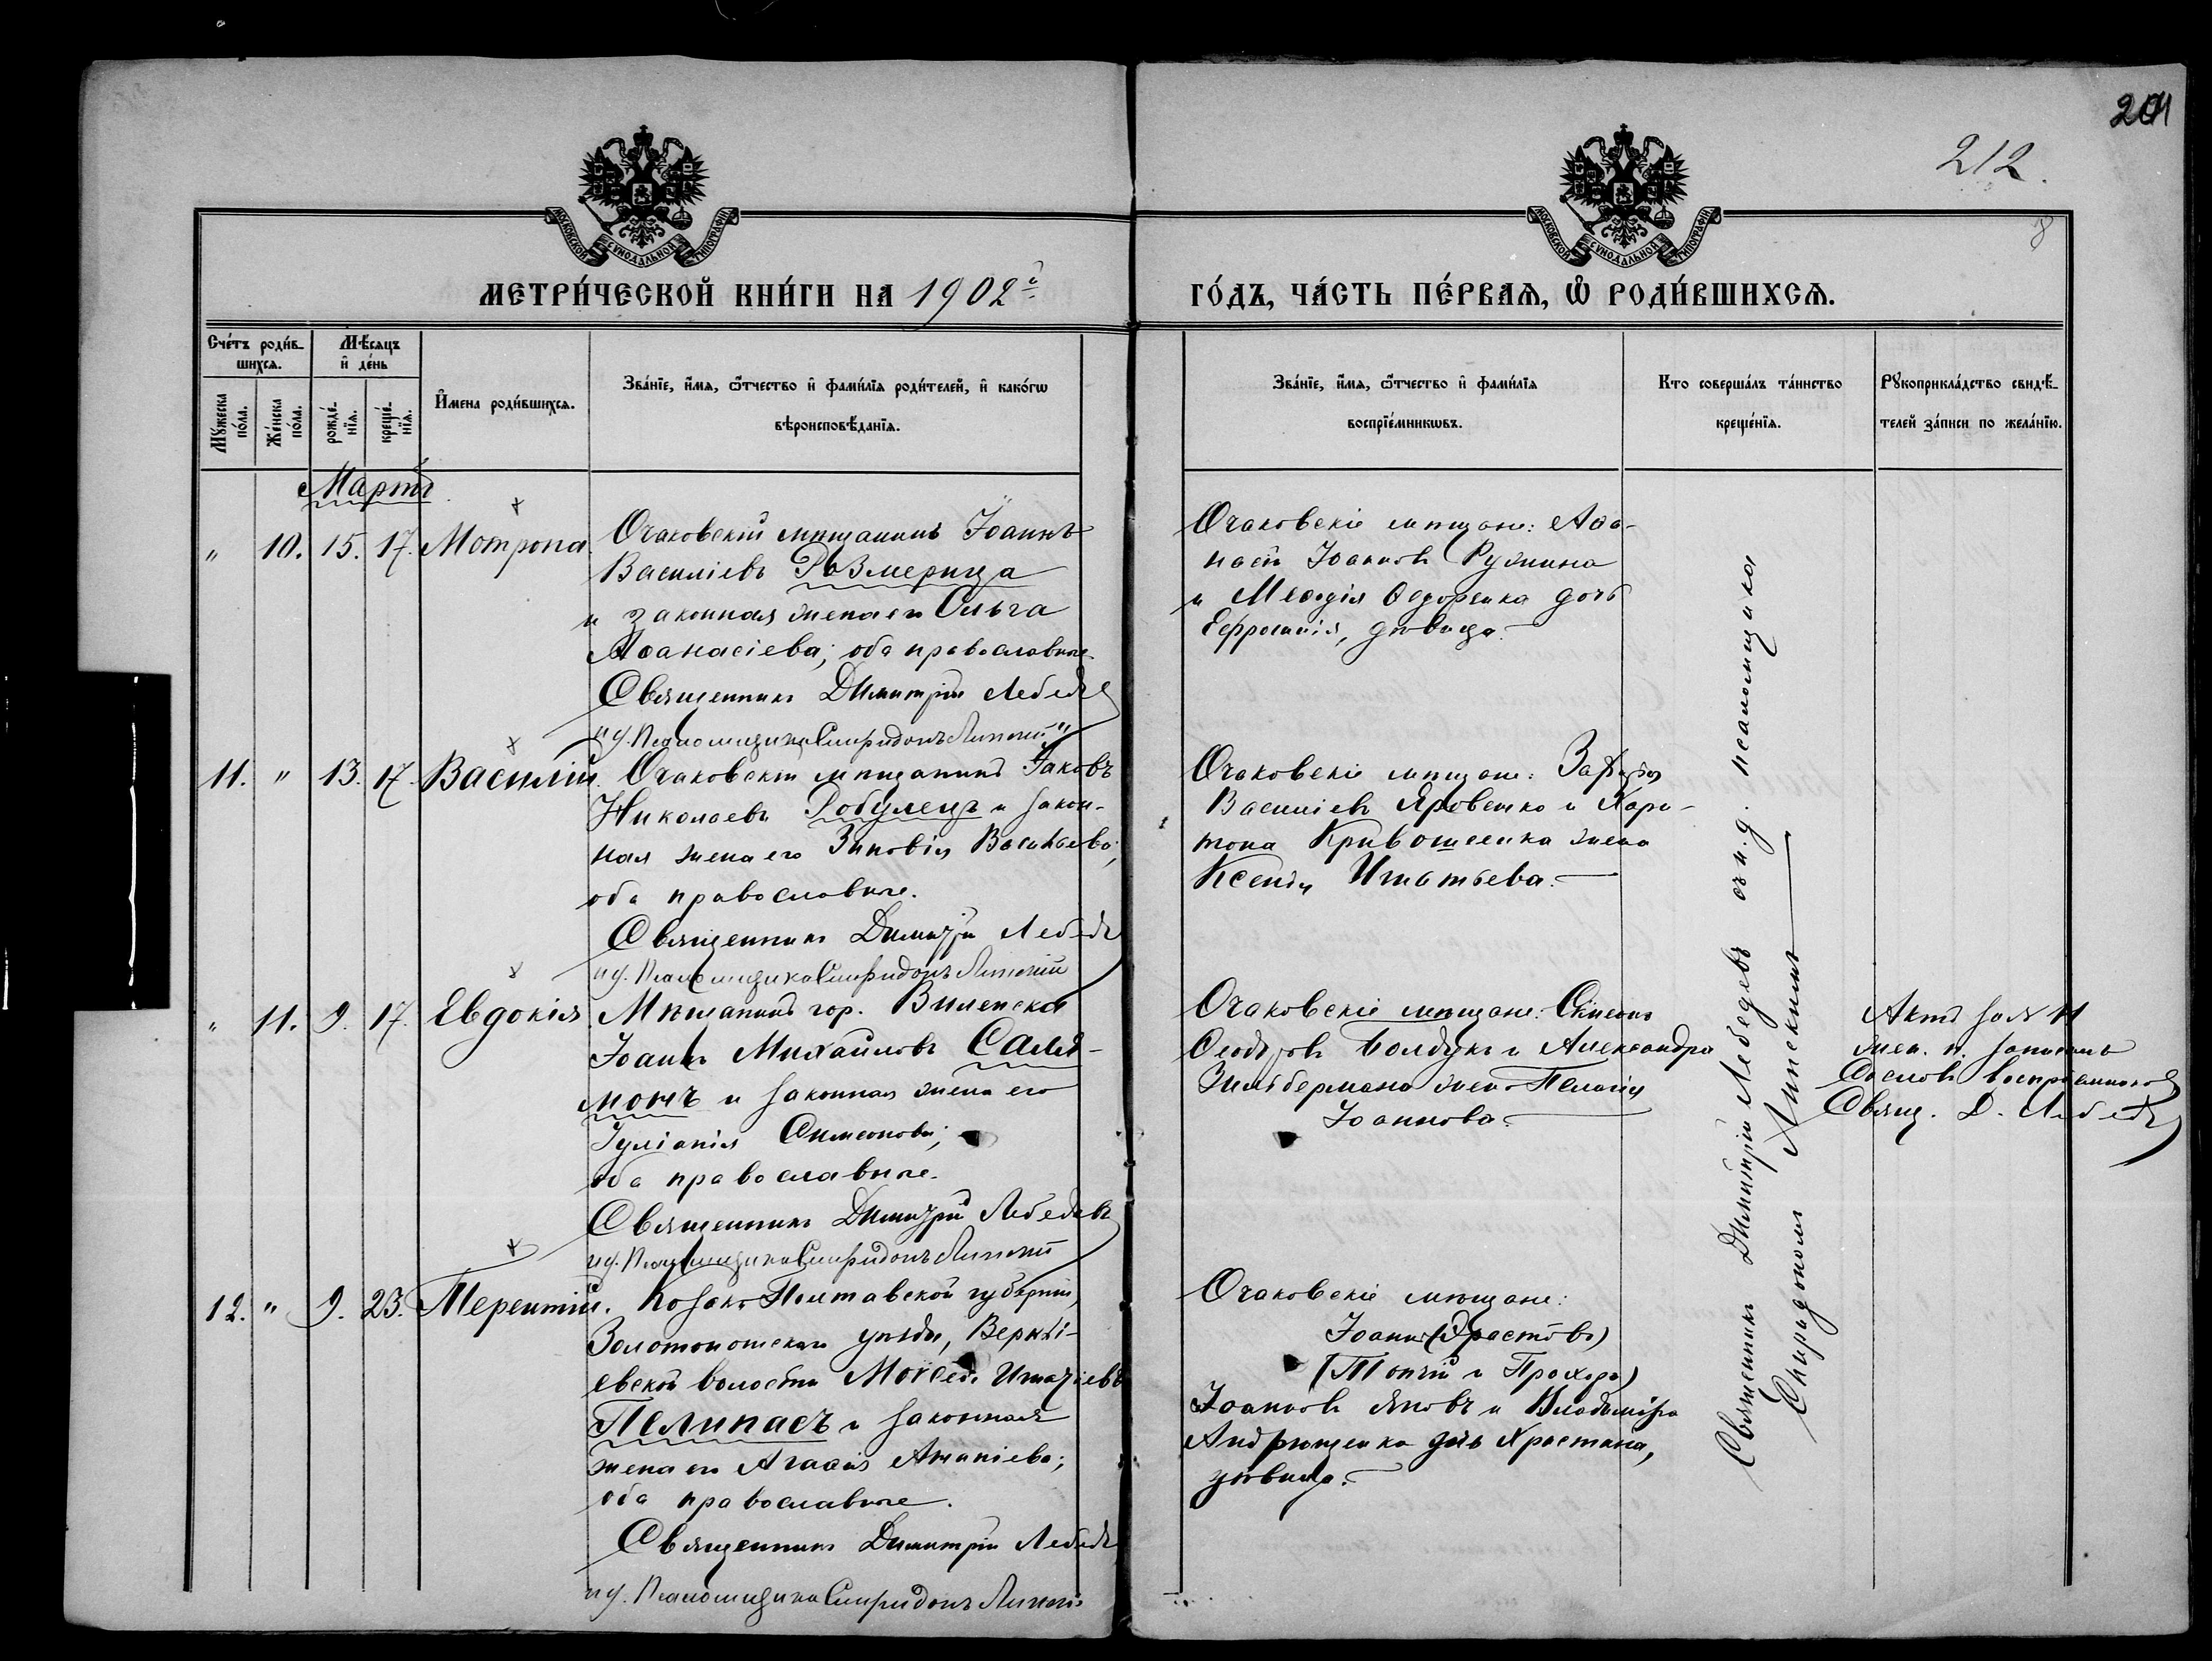 204
212.
8
МОСКОВСКОЙ СУНОДАЛЬНОЙ ТИПОГРАФІИ
МОСКОВСКОЙ СУНОДАЛЬНОЙ ТИПОГРАФІИ
МЕТРИ́ЧЕСКОЙ КНИ́ГИ НА 1902й
ГО́ДЪ, ЧА́СТЬ ПЕ́РВАѦ, Ѡ РОДИ́ВШИХСѦ.
Сче́тъ роди́в-
шихсѧ.
Му́жеска по́ла.
Же́нска по́ла.
Мѣ́сѧцъ
и де́нь
рожде́-
нїѧ.
креще́-
нїѧ.
И҆мена роди́вшихсѧ.
Зва́нїе, и҆́мѧ, ѻ҆́тчество и҆ фами́лїѧ роди́телей, и҆ како́гѡ
вѣроисповѣ́данїѧ.
Зва́нїе, и҆́мѧ, ѻ҆́тчество и҆ фами́лїѧ
воспрїе́мникѡвъ.
Кто соверша́лъ та́инство
креще́нїѧ.
Рꙋкоприкла́дство свидѣ́-
телей за́писи по жела́нїю.
Мартъ
" 10. 15. 17. Мотрона.
Очаковскій мѣщанинъ Іоаннъ
Василіевъ Размерица
и законная жена его Ольга
Аѳанасіева; оба православные.
Священникъ Димитрій Лебедевъ
и.д. Псаломщика Спиридонъ Липскій
Очаковскіе мѣщане: Аѳа-
насій Іоанновъ Ружина
и Меѳодія Ѳедоренка дочь
Ефросинія, дѣвица.
11. " 13. 17. Василій.
Очаковскій мѣщанинъ Іаковъ
Николаевъ Робулецъ и закон-
ная жена его Зиновія Васильева;
оба православные.
Священникъ Димитрій Лебедевъ
и.д. Псаломщика Спиридонъ Липскій
Очаковскіе мѣщане:
Василіевъ Яровенко и Хари-
тона Кривошеенка жена
Ксенія Игнатьева.
" 11. 9. 17. Евдокія.
Мѣщанинъ гор. Виленска
Іоаннъ Михайловъ Сало-
монъ и законная жена его
Іуліанія Симеонова;
оба православные.
Священникъ Димитрій Лебедевъ
и.д. Псаломщика Спиридонъ Липскій
Очаковскіе мѣщане: Симеонъ
Ѳеодоровъ Болдукъ и Александра
Зильбермана жена Пелагія
Іоаннова.
Актъ за № 11
жен. п. записанъ
Со словъ воспріемниковъ
Свящ. Д. Лебедевъ
12. " 9. 23. Терентій.
Козакъ Полтавской губерніи,
Золотоношскаго уѣзда,
евской волости Моисей Игнатіевъ
Пелипасъ и законная
жена его Агаѳія Ананіева;
оба православные.
Священникъ Димитрій Лебедевъ
и.д. Псаломщика Спиридонъ Липскій
Очаковскіе мѣщане:
Іоаннъ
и Прохоръ)
Іоанновъ Яновъ и Владиміра
Андрющенка дочь Христина,
дѣвица.
Священникъ Димитрій Лебедевъ съ и.д. псаломщика
Спиридономъ Липскимъ